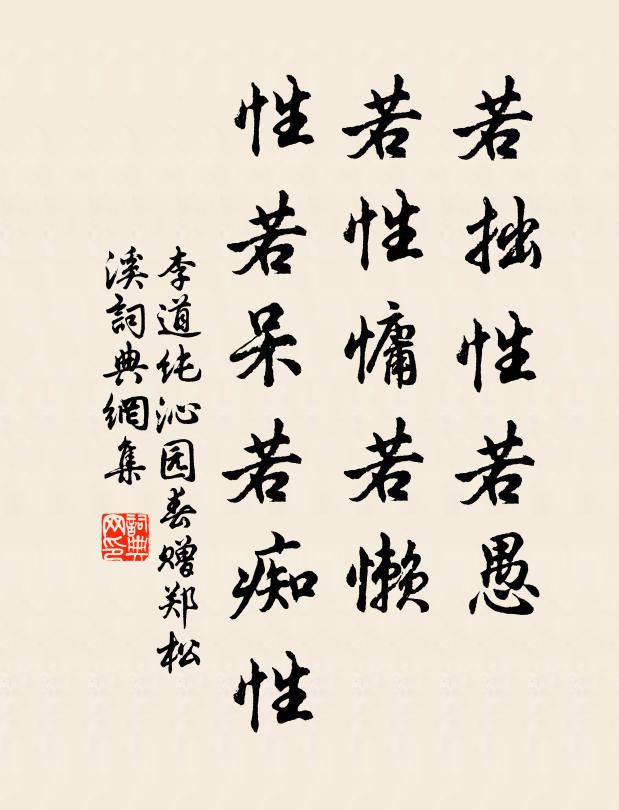 若拙性若愚
若性慵若懒
性若呆若痴性
李道纯沁园春赠郑松
溪詞典網集
詞典网印